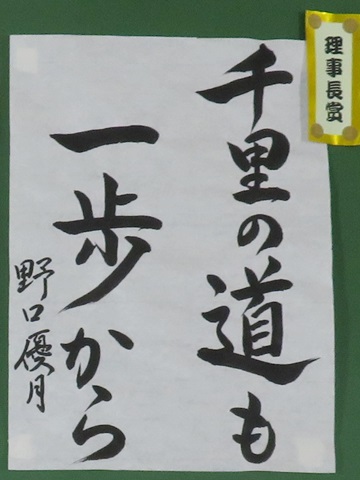 理事長賞
千里の道も
一歩から
野口優月